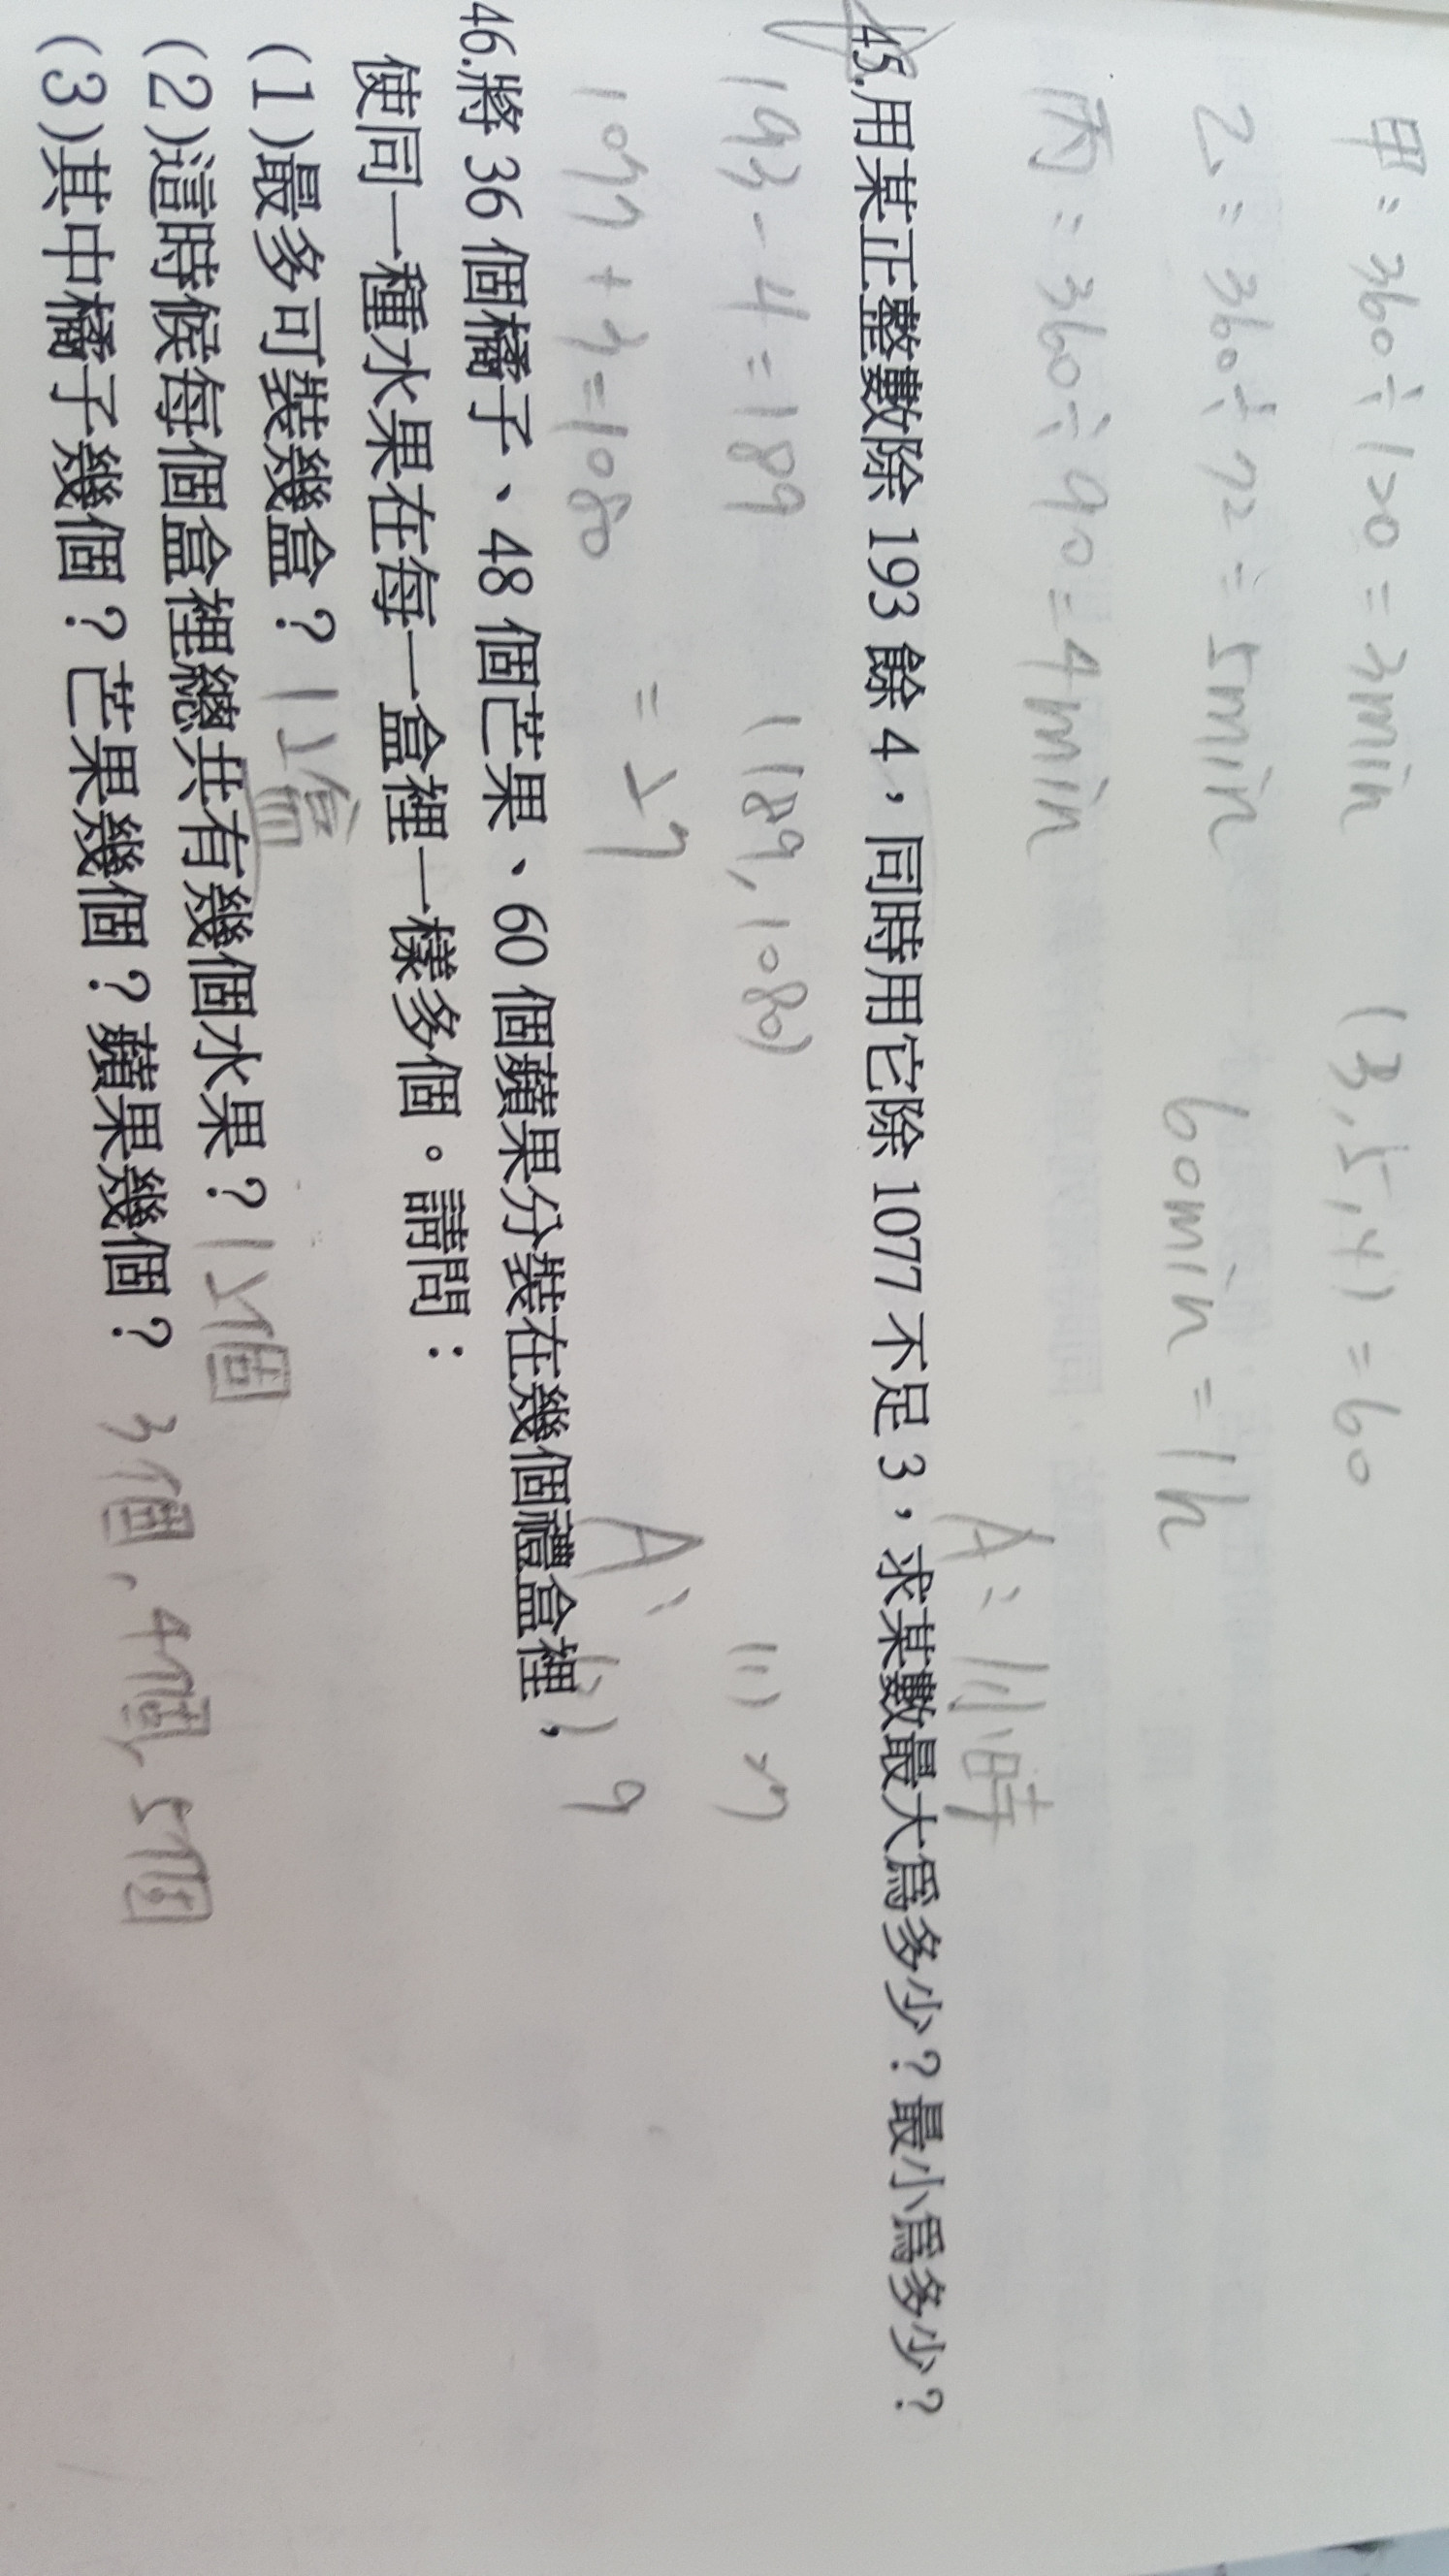 甲=360÷120=3min (3,5,4)=60
乙=360÷72=5min 60min=1h
丙=360÷90=4min A:1小時
45.用某正整數除 193 餘 4，同時用它除 1077 不足 3，求某數最大為多少？最小為多少？
193-4=189 (189,1080) (1)27
1077+3=1080 =27 A: (2) 9
46.將 36 個橘子、48 個芒果、60 個蘋果分裝在幾個禮盒裡，
使同一種水果在每一盒裡一樣多個。請問：
(1)最多可裝幾盒？12盒
(2)這時候每個盒裡總共有幾個水果？12個
(3)其中橘子幾個？芒果幾個？蘋果幾個？ 3個,4個,5個